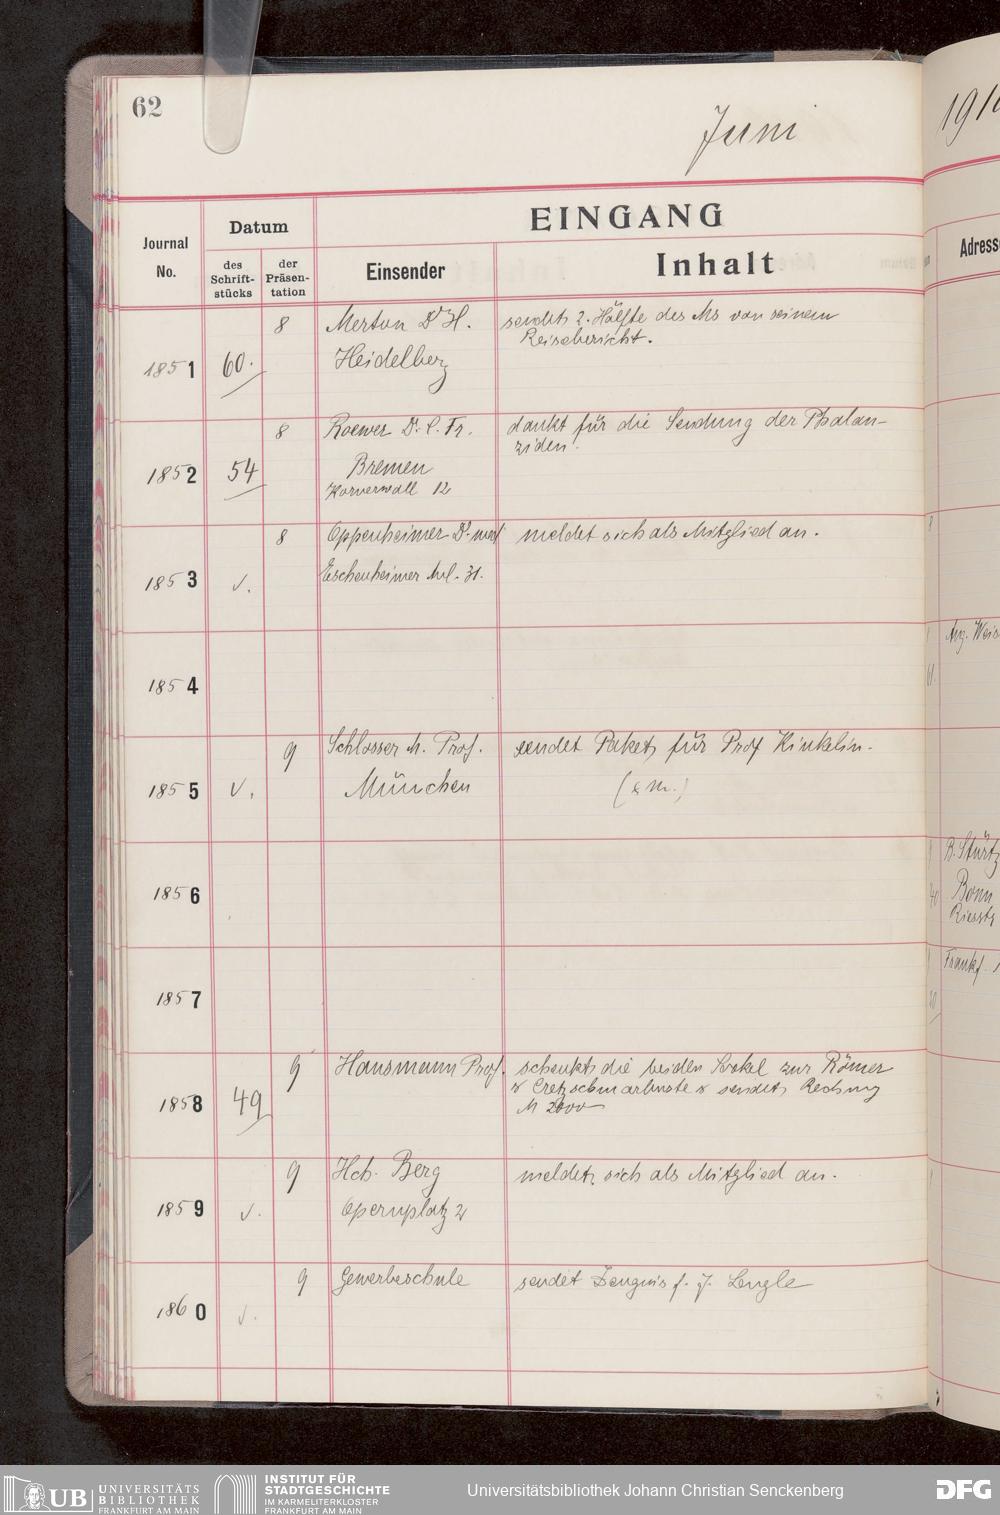 62
Juni
191
EINGANG
Journal
No.
Datum
des
Schrift-
stücks
der
Präsen-
tation
Einsender
Inhalt
Adress
8
Merton Dr H.
sendet 2. Hälfte des Ms von seinem
Reisebericht.
1851
60.
Heidelberg
8
Roewer Dr. C. Fr.
dankt für die Sendung der Phalan-
ziden.
1852
54
Bremen
12
8
Oppenheimer Dr. med
meldet sich als Mitglied an.
1853
v.
Eschenheimer Anl. 31.
1854
9
Schlosser M. Prof.
sendet Paket für Prof Kinkelin.
1855
v.
München
1856
1857
9
Hausmann Prof.
schenkt die beiden Sockel zur Römer
& Cretzschmarbüste & sendet Rechnung
M 2000
1858
49
9
Hch. Berg
meldet sich als Mitglied an.
1859
v.
Opernplatz 2
9
Gewerbeschule
sendet Zeugnis f. J. Lengle
1860
v.
8
Aug. Weis
61.
B. Stürtz
40
Bonn
Riesstr
Frankf.
UB
UNIVERSITÄTS
BIBLIOTHEK
FRANKFURT AM MAIN
INSTITUT FÜR
STADTGESCHICHTE
IM KARMELITERKLOSTER
FRANKFURT AM MAIN
Universitätsbibliothek Johann Christian Senckenberg
DFG